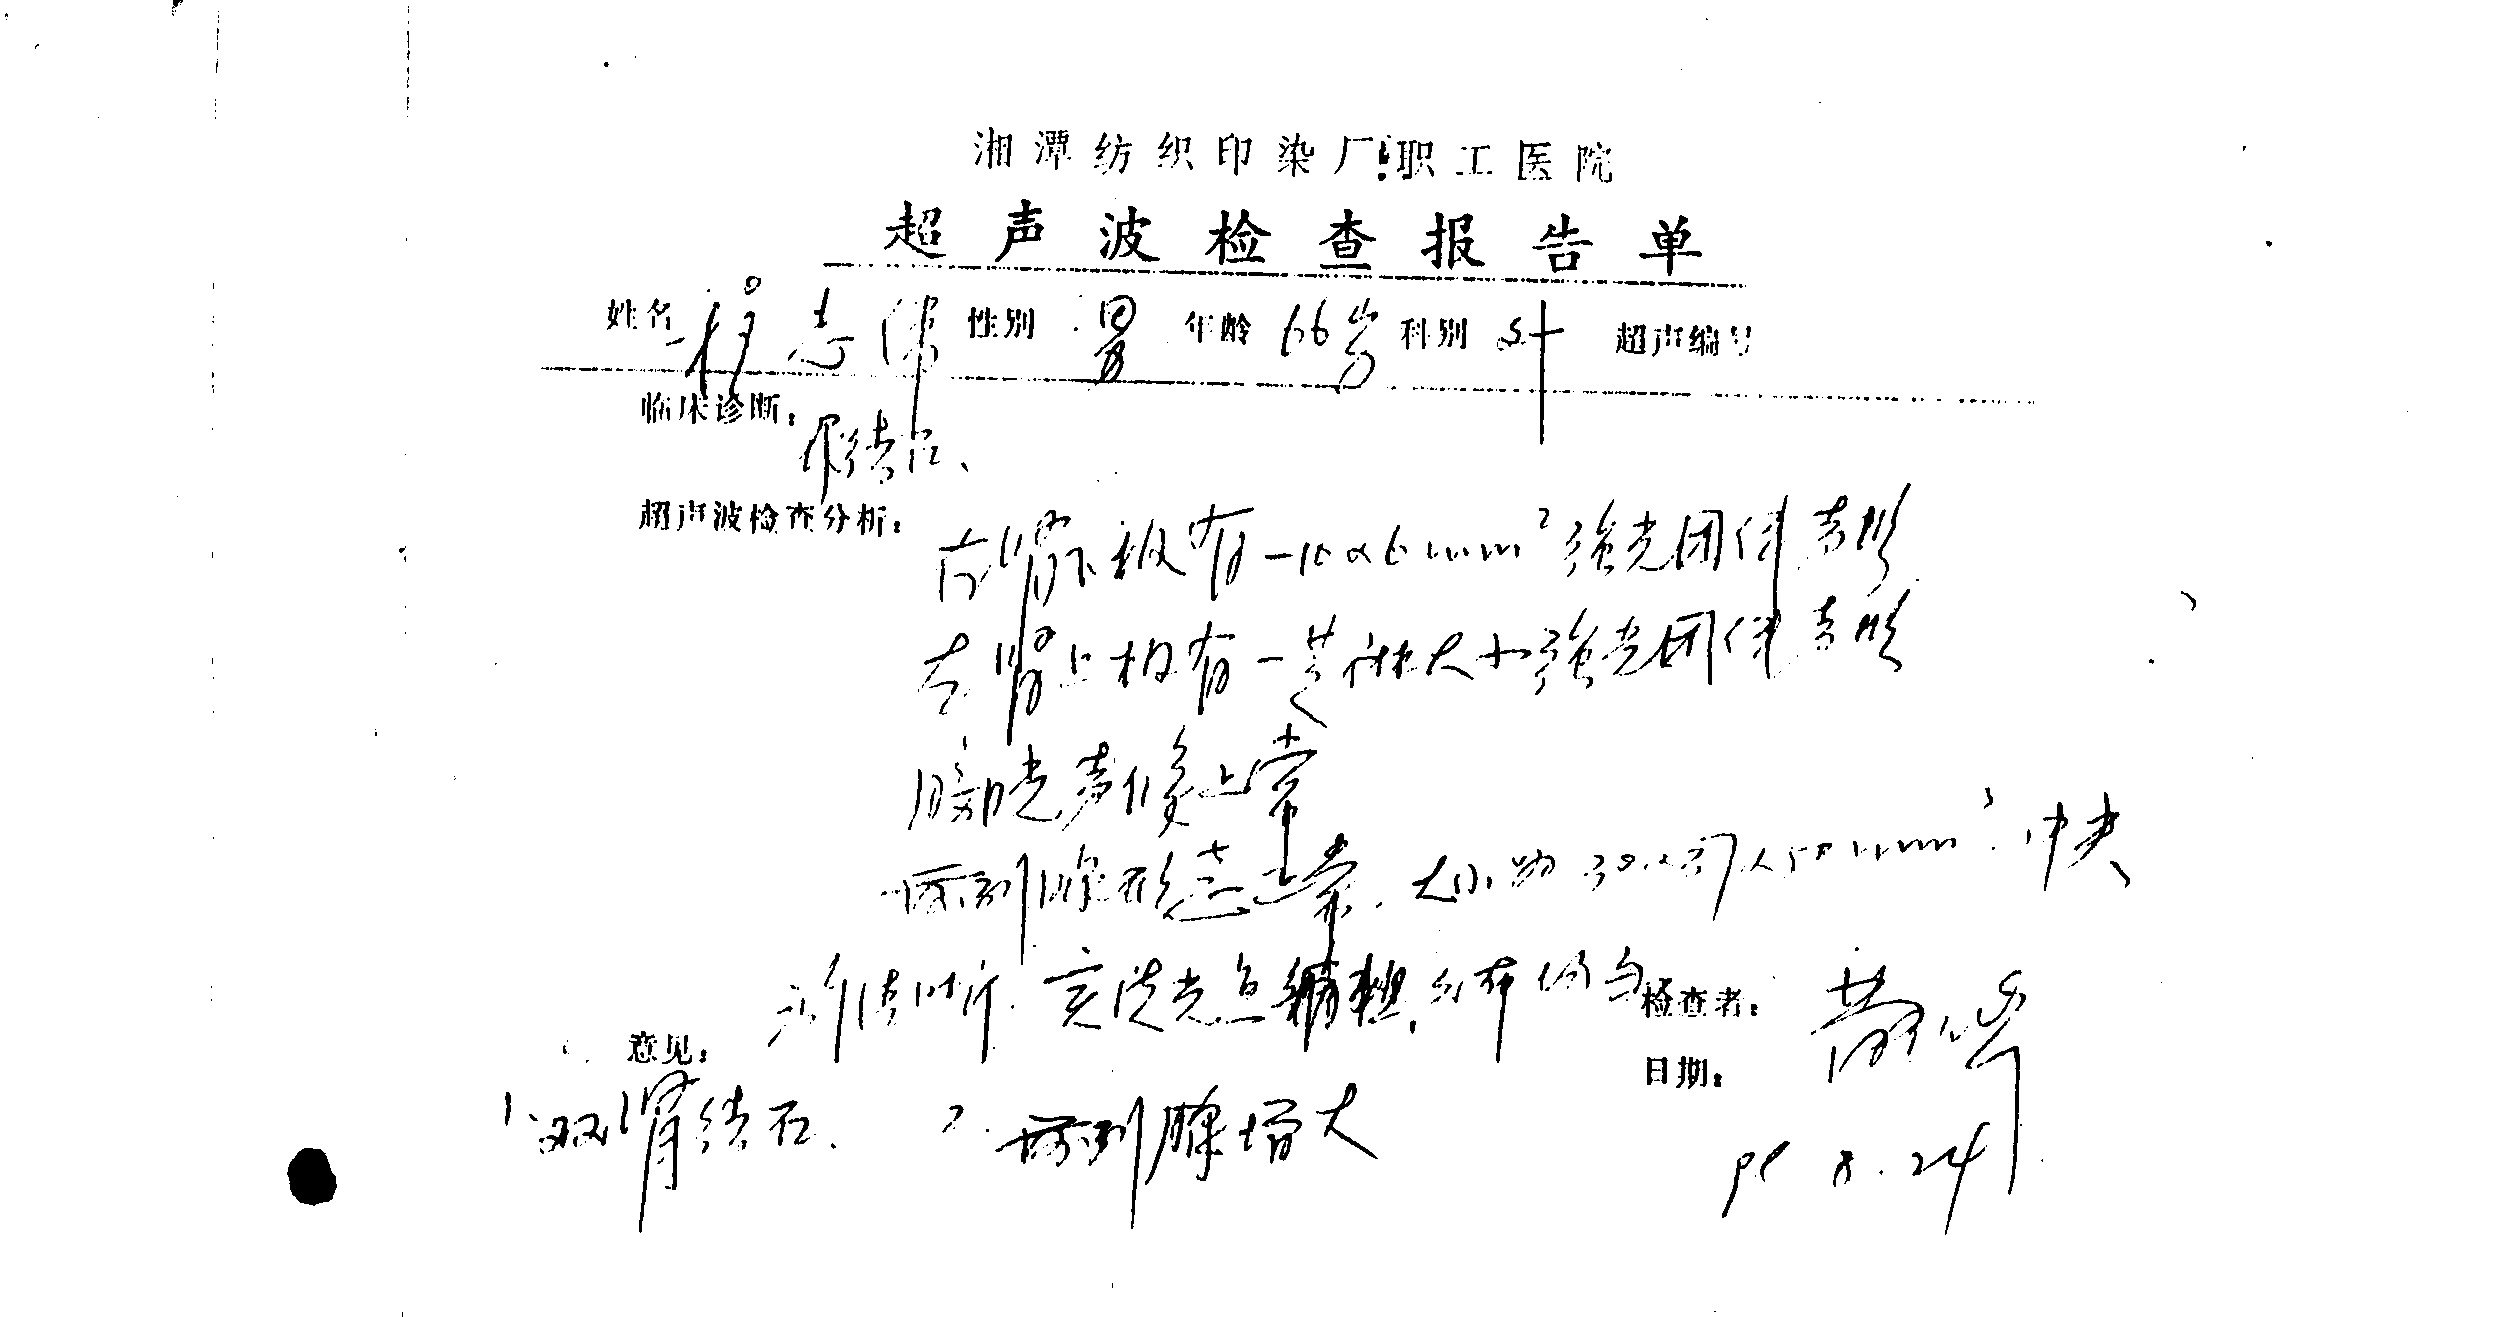 湘潭纺织印染厂职工医院
超声波检查报告单
姓名 志伟 性别 男 年龄 66岁 科别 外 超声编号
临床诊断： 尿结石、
超声波检查分析： 右肾下极有一10×6mm² 强光团伴声影
左肾上极有一芝麻大小强光团伴声影
膀胱声像正常
前列腺形态正常. 大小为 30× ×50mm³. 中央
沟清晰. 实质光点稍粗, 分布均匀 检查者：
意见： 日期：
1、双肾结石、 2. 前列腺增大
8.24